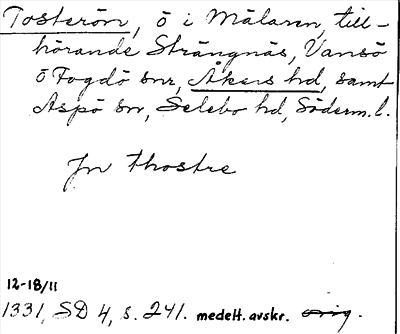 Tosterön, ö i Mälaren, till-
hörande Strängnäs, Vansö
o Fogdö snr, Åkers hd, samt
Aspö sn, Selebo hd, Söderm. l.
Jn Thostre
12-18/11
1331, SD 4, s. 241. medelt. avskr. orig.